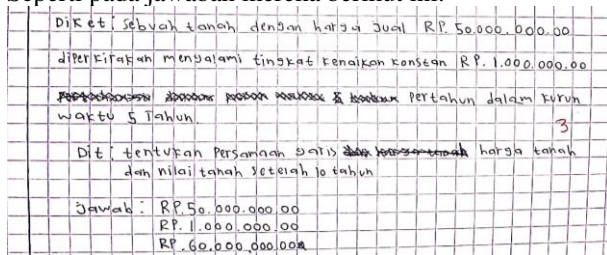 seperti pada jawaban mereka berikut ini:
Diket : sebuah tanah dengan harga jual RP. 50.000.000.00
diperkirakan mengalami tingkat kenaikan konstan RP. 1.000.000.00
pertahun dalam kurun
waktu 5 Tahun.
3
Dit : tentukan Persamaan garis harga tanah
dan nilai tanah setelah 10 tahun
Jawab : RP. 50.000.000.00
RP. 1.000.000.00
RP. 60.000.000.00